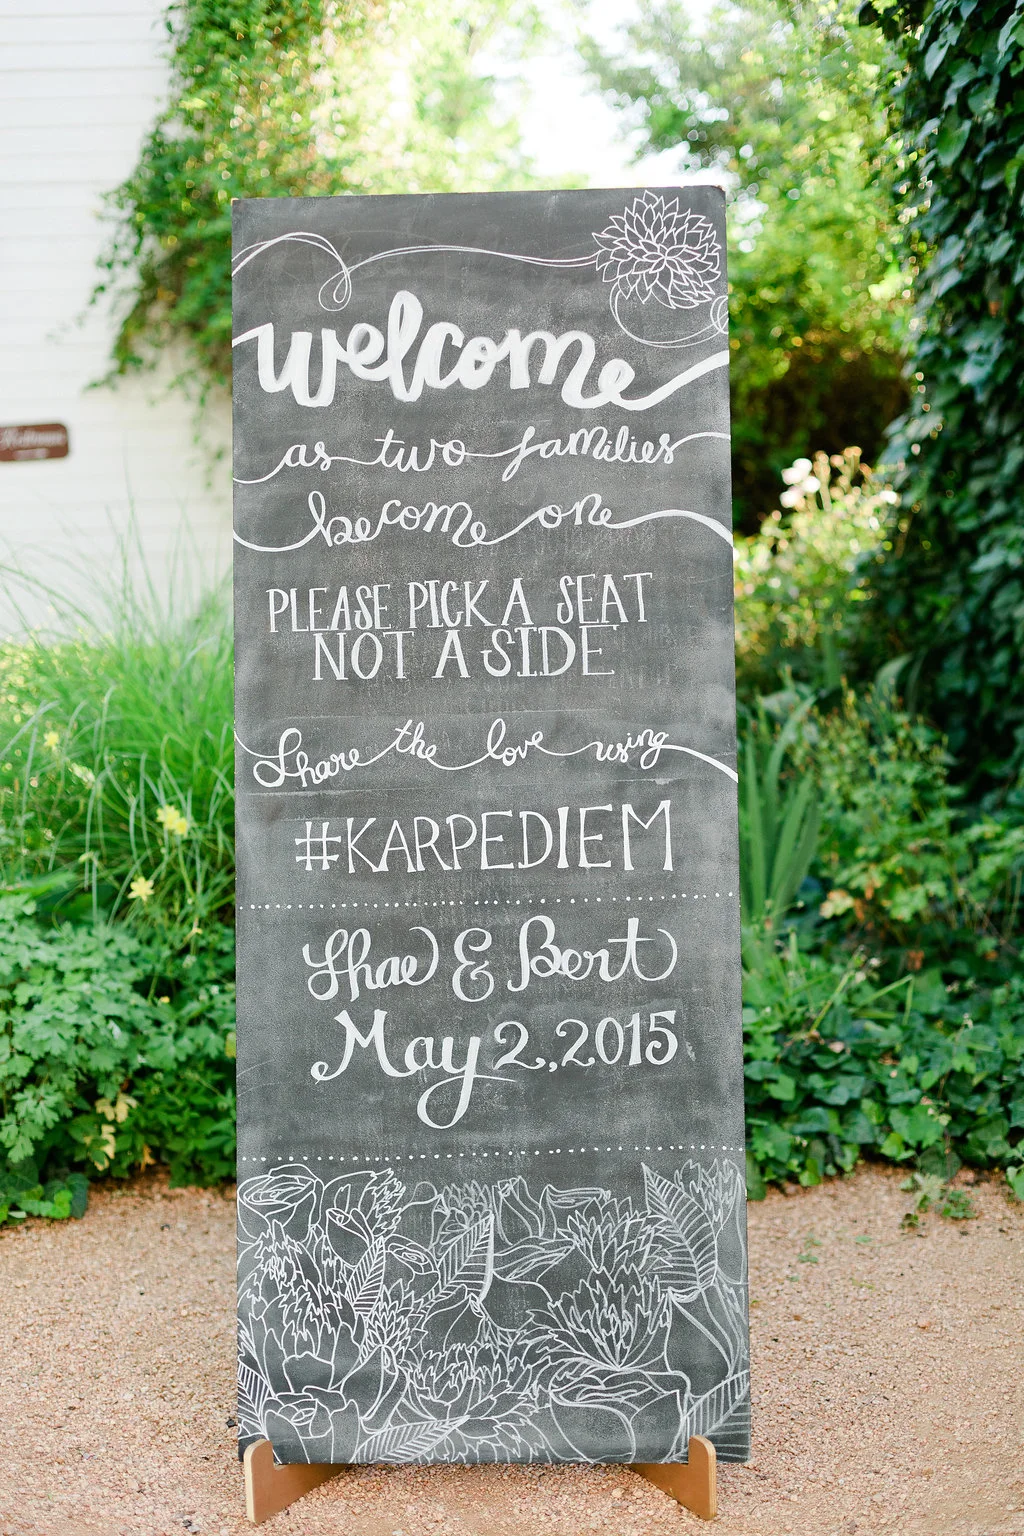 welcome
as two families
become one
PLEASE PICK A SEAT
NOT A SIDE
Share the love using
#KARPEDIEM
Shae & Bert
May 2, 2015